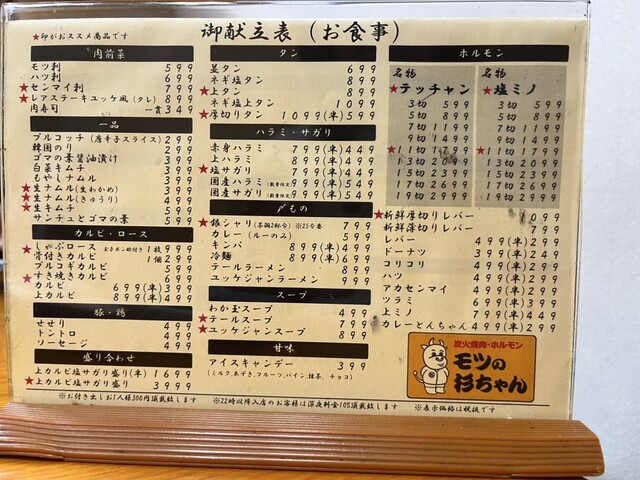 ★印がおススメ商品です
御献立表(お食事)
肉前菜
モツ刺 599
ハツ刺 699
★センマイ刺 799
★レアステーキユッケ風(タレ) 899
肉寿司 一貫349
一品
プルコッチ(唐辛子スライス) 299
韓国のり 299
ゴマの葉醤油漬け 399
白菜キムチ 399
もやしナムル 399
★生ナムル(生わかめ) 399
★生ナムル(きゅうり) 499
★生キムチ 599
サンチュとゴマの葉 599
カルビ・ロース
★しゃぶロース 1枚 999
骨付きカルビ 1個 299
プルコギカルビ 599
★すき焼きカルビ 599
カルビ 699(半)399
上カルビ 899(半)499
豚・鶏
せせり 499
トントロ 499
ソーセージ 499
盛り合わせ
上カルビ塩サガリ盛り(半) 1699
★上カルビ塩サガリ盛り 3999
タン
並タン 699
ネギ塩タン 899
★上タン 899
ネギ塩上タン 1099
★厚切りタン 1099(半)599
ハラミ・サガリ
赤身ハラミ 799(半)449
上ハラミ 899(半)499
★塩サガリ 799(半)449
国産ハラミ(数量限定) 999(半)549
国産サガリ(数量限定) 999(半)549
〆もの
★銀シャリ(茶碗2杯分)※25分要 799
カレー(ルーのみ) 599
キンパ 899(半)499
冷麺 899(半)699
テールラーメン 899
ユッケジャンラーメン 899
スープ
わか玉スープ 499
★テールスープ 799
★ユッケジャンスープ 899
甘味
アイスキャンデー 399
(ミルク,あずき,フルーツ,パイン,抹茶,チョコ)
ホルモン
名物
★テッチャン
3切 599
5切 799
7切 999
9切 1499
★11切 1799
13切 2099
15切 2399
17切 2699
19切 2999
名物
★塩ミノ
3切 599
5切 799
7切 999
9切 1499
★11切 1799
13切 2099
15切 2399
17切 2699
19切 2999
★新鮮厚切りレバー 1099
新鮮薄切りレバー 899
レバー 499(半)299
ドーナツ 449(半)249
コリコリ 499(半)299
ハツ 499(半)299
アカセンマイ 499(半)299
ツラミ 699(半)399
上ミノ 799(半)449
カレーとんちゃん 499(半)299
炭火焼肉・ホルモン
モツの
杉ちゃん
※お付き出しお1人様300円頂戴致します
※22時以降入店のお客様は深夜料金10%頂戴致します
※表示価格は税抜です